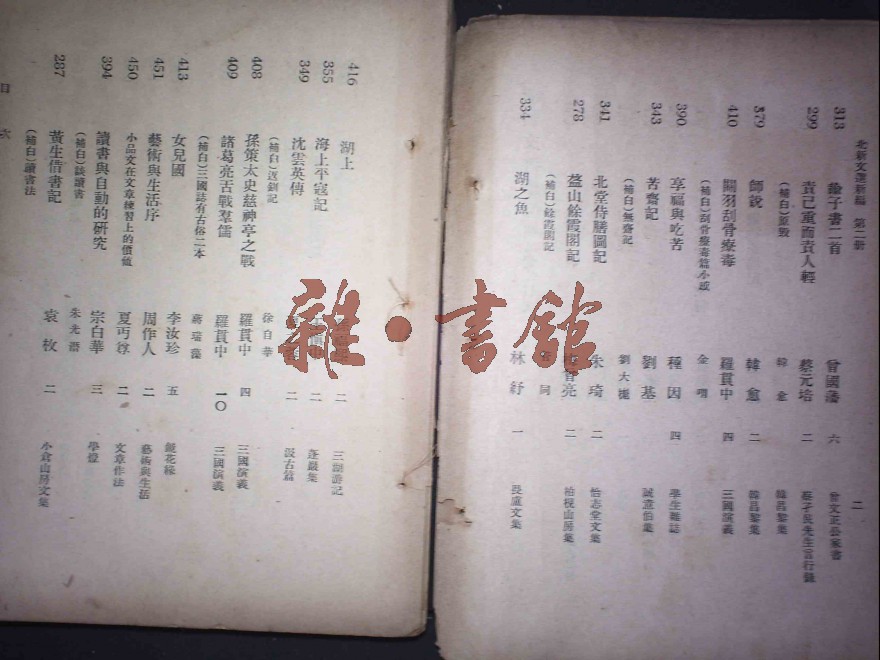 北新文選新編 第二册 二
313 諭子書二首 曾國藩 六 曾文正公家書
299 責己重而責人輕 蔡元培 二 蔡孑民先生言行錄
(補白)原毀 韓愈 韓昌黎集
379 師說 韓愈 二 韓昌黎集
410 關羽刮骨療毒 羅貫中 四 三國演義
(補白)刮骨療毒篇小 金喟
390 享福與吃苦 種因 四 學生雜誌
343 苦齋記 劉基 誠意伯集
(補白)無齋記 劉大櫆
341 北堂侍膳圖記 朱琦 二 怡志堂文集
278 盋山餘霞閣記 曾亮 二 柏梘山房集
(補白)餘霞閣記 同
334 湖之魚 林紓 一 畏廬文集
416 湖上 二 三湖游記
355 海上平寇記 二 遵巖集
349 沈雲英傳 二 汲古篇
(補白)返釧記 徐自華
408 孫策太史慈神亭之戰 羅貫中 四 三國演義
409 諸葛亮舌戰羣儒 羅貫中 一〇 三國演義
(補白)三國誌有古俗二本 蔣瑞藻
413 女兒國 李汝珍 五 鏡花緣
451 藝術與生活序 周作人 二 藝術與生活
450 小品文在文章練習上的價值 夏丏尊 二 文章作法
394 讀書與自動的研究 宗白華 三 學燈
(補白)談讀書 朱光潛
287 黃生借書記 袁枚 二 小倉山房文集
(補白)讀書法
目 六
雜·書館